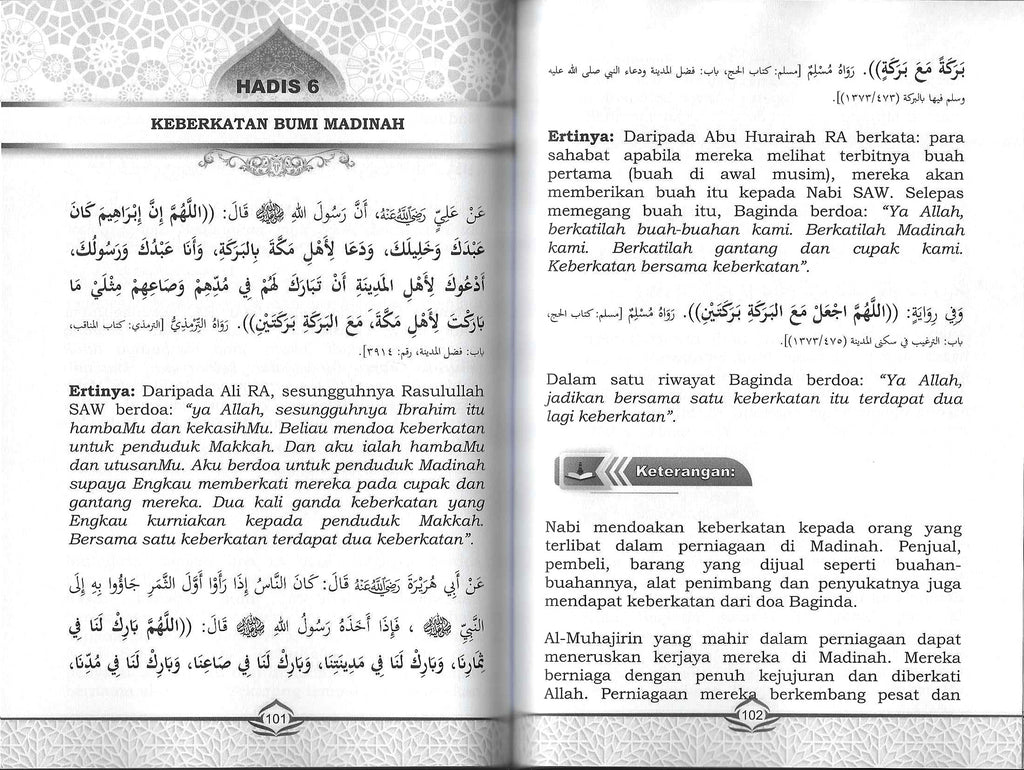 HADIS 6
KEBERKATAN BUMI MADINAH
عَنْ عَلِيٍّ رَضِيَ اللَّهُ عَنْهُ، أَنَّ رَسُولَ اللهِ ﷺ قَالَ: ((اللَّهُمَّ إِنَّ إِبْرَاهِيمَ كَانَ
عَبْدَكَ وَخَلِيلَكَ، وَدَعَا لِأَهْلِ مَكَّةَ بِالبَرَكَةِ، وَأَنَا عَبْدُكَ وَرَسُولُكَ،
أَدْعُوكَ لِأَهْلِ المَدِينَةِ أَنْ تُبَارَكَ لَهُمْ فِي مُدِّهِمْ وَصَاعِهِمْ مِثْلَيْ مَا
بَارَكْتَ لِأَهْلِ مَكَّةَ، مَعَ البَرَكَةِ بَرَكَتَيْنِ)). رَوَاهُ التِّرْمِذِيُّ [الترمذي: كتاب المناقب،
باب: فضل المدينة، رقم: ٣٩١٤].
Ertinya: Daripada Ali RA, sesungguhnya Rasulullah
SAW berdoa: “ya Allah, sesungguhnya Ibrahim itu
hambaMu dan kekasihMu. Beliau mendoa keberkatan
untuk penduduk Makkah. Dan aku ialah hambaMu
dan utusanMu. Aku berdoa untuk penduduk Madinah
supaya Engkau memberkati mereka pada cupak dan
gantang mereka. Dua kali ganda keberkatan yang
Engkau kurniakan kepada penduduk Makkah.
Bersama satu keberkatan terdapat dua keberkatan”.
عَنْ أَبِي هُرَيْرَةَ رَضِيَ اللَّهُ عَنْهُ قَالَ: كَانَ النَّاسُ إِذَا رَأَوْا أَوَّلَ الثَّمَرِ جَاؤُوا بِهِ إِلَى
النَّبِيِّ ﷺ ، فَإِذَا أَخَذَهُ رَسُولُ اللهِ ﷺ قَالَ: ((اللَّهُمَّ بَارِكْ لَنَا فِي
ثَمَارِنَا، وَبَارِكْ لَنَا فِي مَدِينَتِنَا، وَبَارِكْ لَنَا فِي صَاعِنَا، وَبَارِكْ لَنَا فِي مُدِّنَا،
101
بَرَكَةً مَعَ بَرَكَةٍ)). رَوَاهُ مُسْلِمٌ [مسلم: كتاب الحج، باب: فضل المدينة ودعاء النبي صلى الله عليه
وسلم فيها بالبركة (١٣٧٣/٤٧٣)].
Ertinya: Daripada Abu Hurairah RA berkata: para
sahabat apabila mereka melihat terbitnya buah
pertama (buah di awal musim), mereka akan
memberikan buah itu kepada Nabi SAW. Selepas
memegang buah itu, Baginda berdoa: “Ya Allah,
berkatilah buah-buahan kami. Berkatilah Madinah
kami. Berkatilah gantang dan cupak kami.
Keberkatan bersama keberkatan”.
وَفِي رِوَايَةٍ: ((اللَّهُمَّ اجْعَلْ مَعَ البَرَكَةِ بَرَكَتَيْنِ)). رَوَاهُ مُسْلِمٌ [مسلم: كتاب الحج،
باب: الترغيب في سكنى المدينة (١٣٧٣/٤٧٥)].
Dalam satu riwayat Baginda berdoa: “Ya Allah,
jadikan bersama satu keberkatan itu terdapat dua
lagi keberkatan”.
Keterangan:
Nabi mendoakan keberkatan kepada orang yang
terlibat dalam perniagaan di Madinah. Penjual,
pembeli, barang yang dijual seperti buahan-
buahannya, alat penimbang dan penyukatnya juga
mendapat keberkatan dari doa Baginda.
Al-Muhajirin yang mahir dalam perniagaan dapat
meneruskan kerjaya mereka di Madinah. Mereka
berniaga dengan penuh kejujuran dan diberkati
Allah. Perniagaan mereka berkembang pesat dan
102